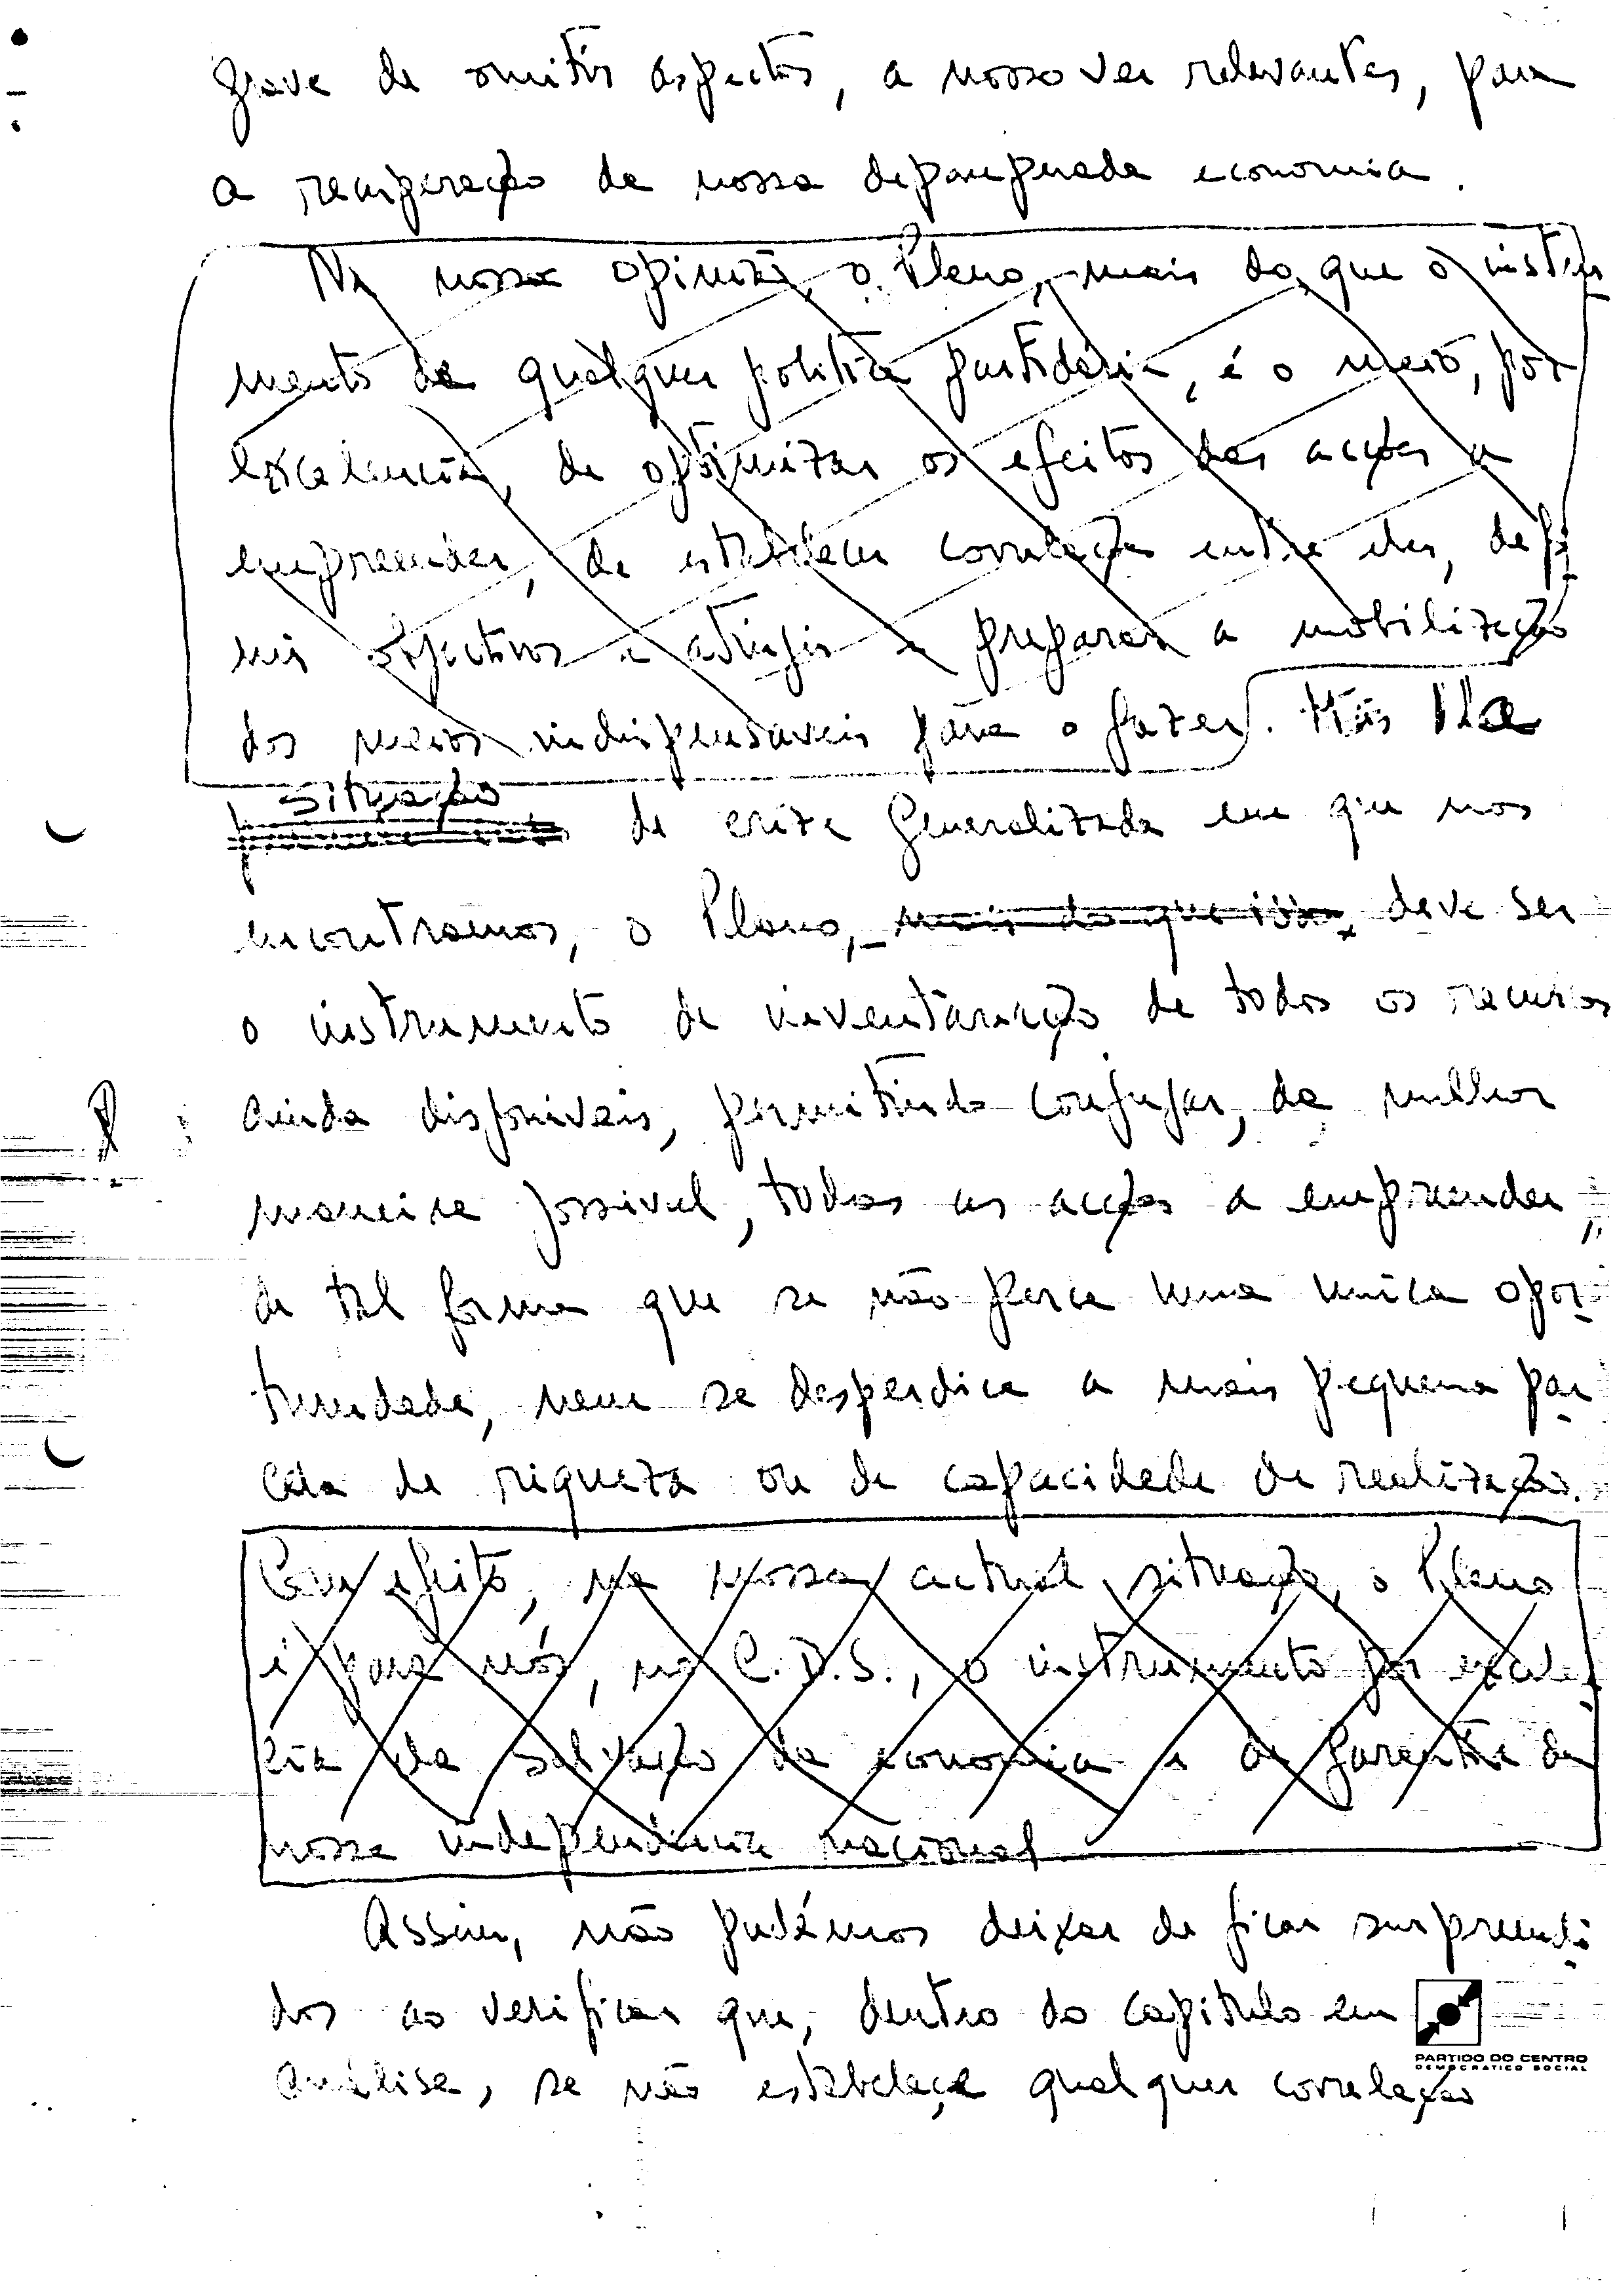 grave de omitir aspectos, a nosso ver relevantes, para
a recuperação da nossa depauperada economia.
Na nossa opinião, o Plano, mais do que o instru
mento de qualquer política partidária, é o meio, por
excelencia, de optimizar os efeitos das acções a
empreender, de estabelecer correlações entre elas, defi
nir objectivos a atingir e preparar a mobilização
dos meios indispensaveis para o fazer. Na
situação de crize generalizada em que nos
encontramos, o Plano, mais do que isso, deve ser
o instrumento de inventariação de todos os recursos
ainda disponiveis, permitindo conjugar, da melhor
maneira possivel, todas as acções a empreender,
de tal forma que se não perca uma unica opor-
tunidade, nem se desperdice a mais pequena par
cela de riqueza ou de capacidade de realização.
Com efeito, na nossa actual situação, o Plano
é para nós, no C.D.S., o instrumento por excelen
cia da salvação da economia e da garantia da
nossa independencia nacional
Assim, não pudémos deixar de ficar surpreendi
dos ao verificar que, dentro do capitulo em
análise, se não estabeleça qualquer correlação
PARTIDO DO CENTRO
DEMOCRATICO SOCIAL